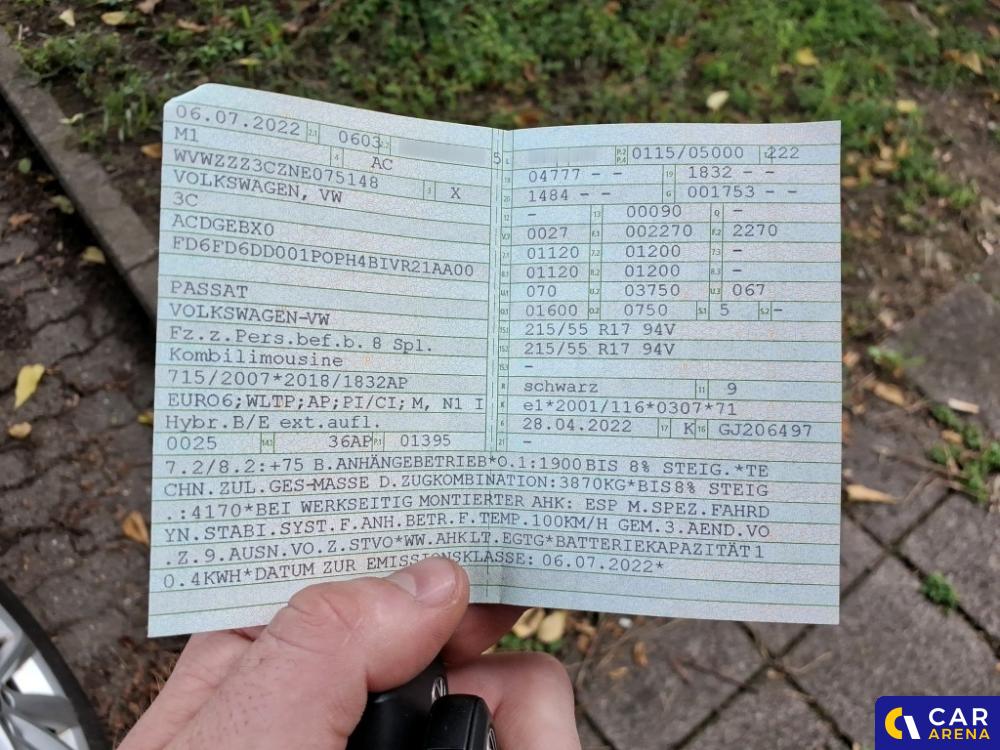 06.07.2022 2.1 0603 2.2 5
M1 4 AC
WVWZZZ3CZNE075148 3 X
VOLKSWAGEN, VW
3C
ACDGEBX0
FD6FD6DD001POPH4BIVR21AA00
PASSAT
VOLKSWAGEN-VW
Fz.z.Pers.bef.b. 8 Spl.
Kombilimousine
715/2007*2018/1832AP
EURO6;WLTP;AP;PI/CI; M, N1 I
Hybr.B/E ext.aufl.
0025 14.1 36AP P.1 01395
L P.2 P.4 0115/05000 T 222
18 04777 - - 19 1832 - -
20 1484 - - G 001753 - -
12 - 13 00090 Q -
V.7 0027 F.1 002270 F.2 2270
7.1 01120 7.2 01200 7.3 -
8.1 01120 8.2 01200 8.3 -
U.1 070 U.2 03750 U.3 067
O.1 01600 O.2 0750 S.1 5 S.2 -
15.1 215/55 R17 94V
15.2 215/55 R17 94V
15.3 -
R schwarz 11 9
K e1*2001/116*0307*71
6 28.04.2022 17 K 16 GJ206497
21 -
7.2/8.2:+75 B.ANHÄNGEBETRIEB*O.1:1900BIS 8% STEIG.*TE
CHN.ZUL.GES-MASSE D.ZUGKOMBINATION:3870KG*BIS8% STEIG
.:4170*BEI WERKSEITIG MONTIERTER AHK: ESP M.SPEZ.FAHRD
YN.STABI.SYST.F.ANH.BETR.F.TEMP.100KM/H GEM.3.AEND.VO
.Z.9.AUSN.VO.Z.STVO*WW.AHKLT.EGTG*BATTERIEKAPAZITÄT1
0.4KWH*DATUM ZUR EMISSIONSKLASSE: 06.07.2022*
CAR
ARENA